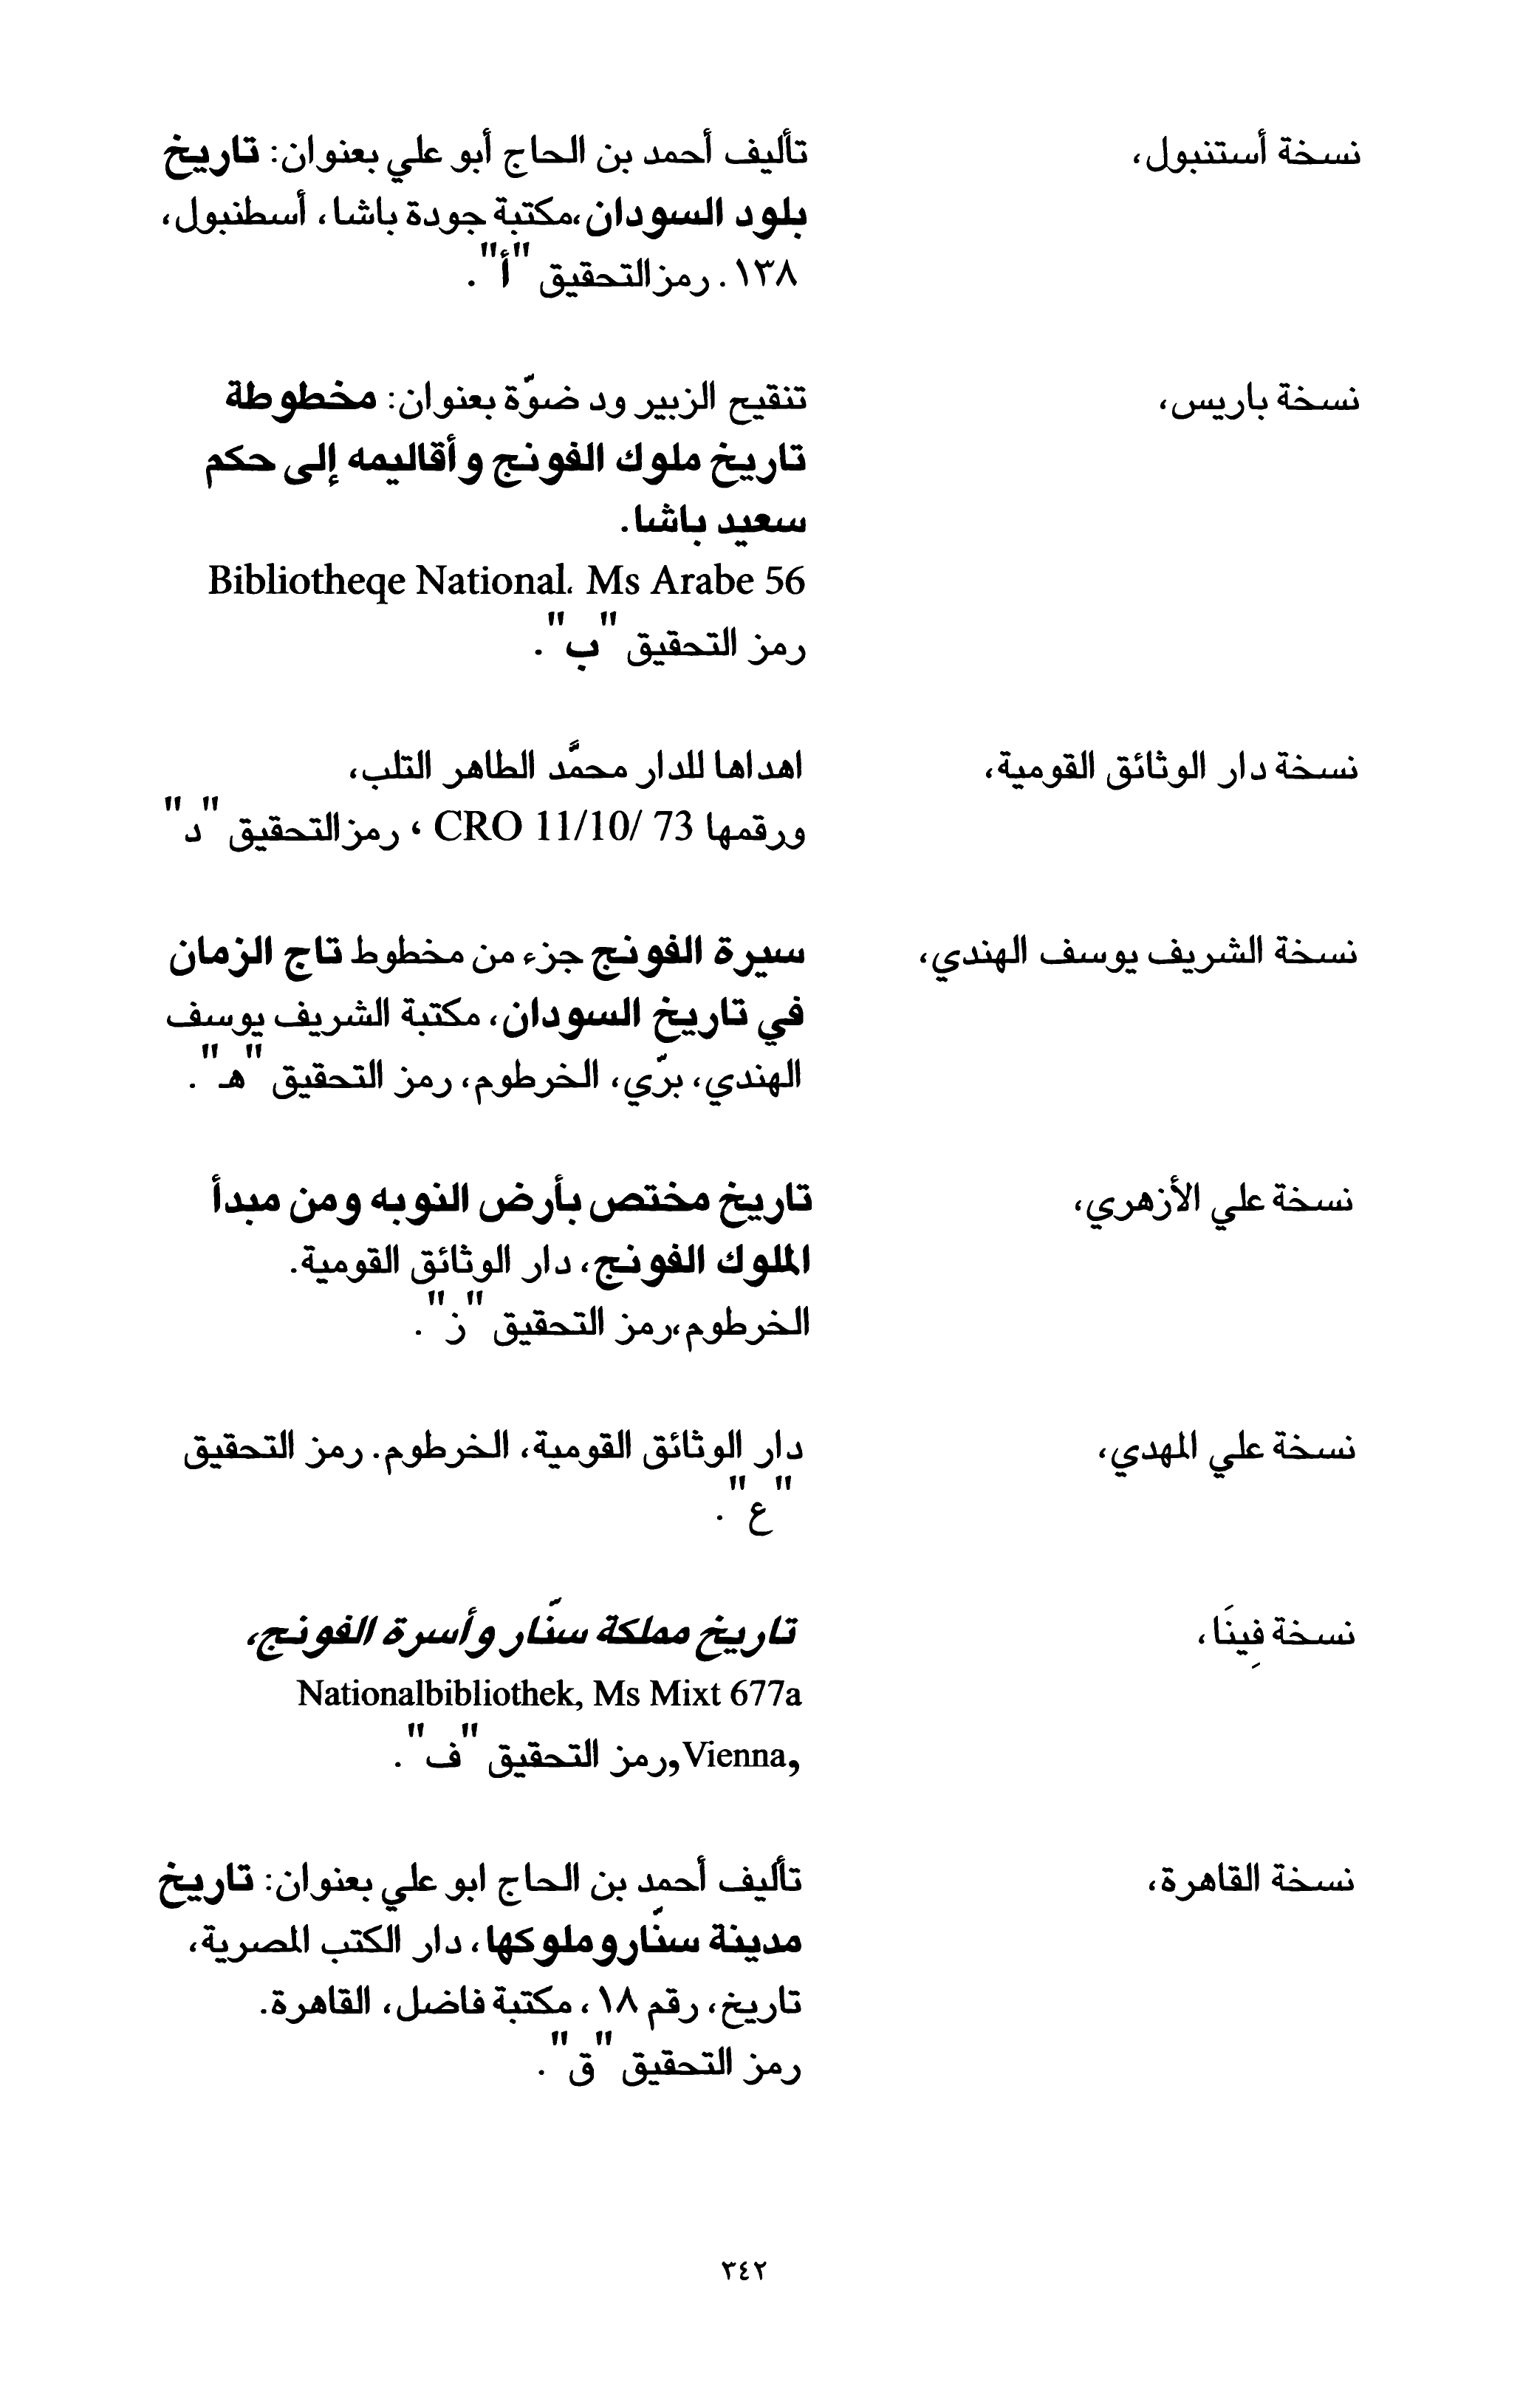 نسخة أستنبول، تأليف أحمد بن الحاج أبو علي بعنوان: تاريخ
بلود السودان،مكتبة جودة باشا، أسطنبول،
١٣٨. رمزالتحقيق "أ".
نسخة باريس، تنقيح الزبير ود ضوّة بعنوان: مخطوطة
تاريخ ملوك الفونج وأقاليمه إلى حكم
سعيد باشا.
Bibliotheqe National. Ms Arabe 56
رمز التحقيق "ب".
نسخة دار الوثائق القومية، اهداها للدار محمَّد الطاهر التلب،
ورقمها CRO 11/10/ 73 ، رمزالتحقيق "د"
نسخة الشريف يوسف الهندي، سيرة الفونج جزء من مخطوط تاج الزمان
في تاريخ السودان، مكتبة الشريف يوسف
الهندي، برّي، الخرطوم، رمز التحقيق "هـ".
نسخة علي الأزهري، تاريخ مختص بأرض النوبه ومن مبدأ
الملوك الفونج، دار الوثائق القومية.
الخرطوم،رمز التحقيق "ز".
نسخة علي المهدي، دار الوثائق القومية، الخرطوم. رمز التحقيق
"ع".
نسخة فِينَا، تاريخ مملكة سنّار وأسرة الفونج،
Nationalbibliothek, Ms Mixt 677a
,Vienna,رمز التحقيق "ف".
نسخة القاهرة، تأليف أحمد بن الحاج ابو علي بعنوان: تاريخ
مدينة سنّاروملوكها، دار الكتب المصرية،
تاريخ، رقم ١٨، مكتبة فاضل، القاهرة.
رمز التحقيق "ق".
٣٤٢